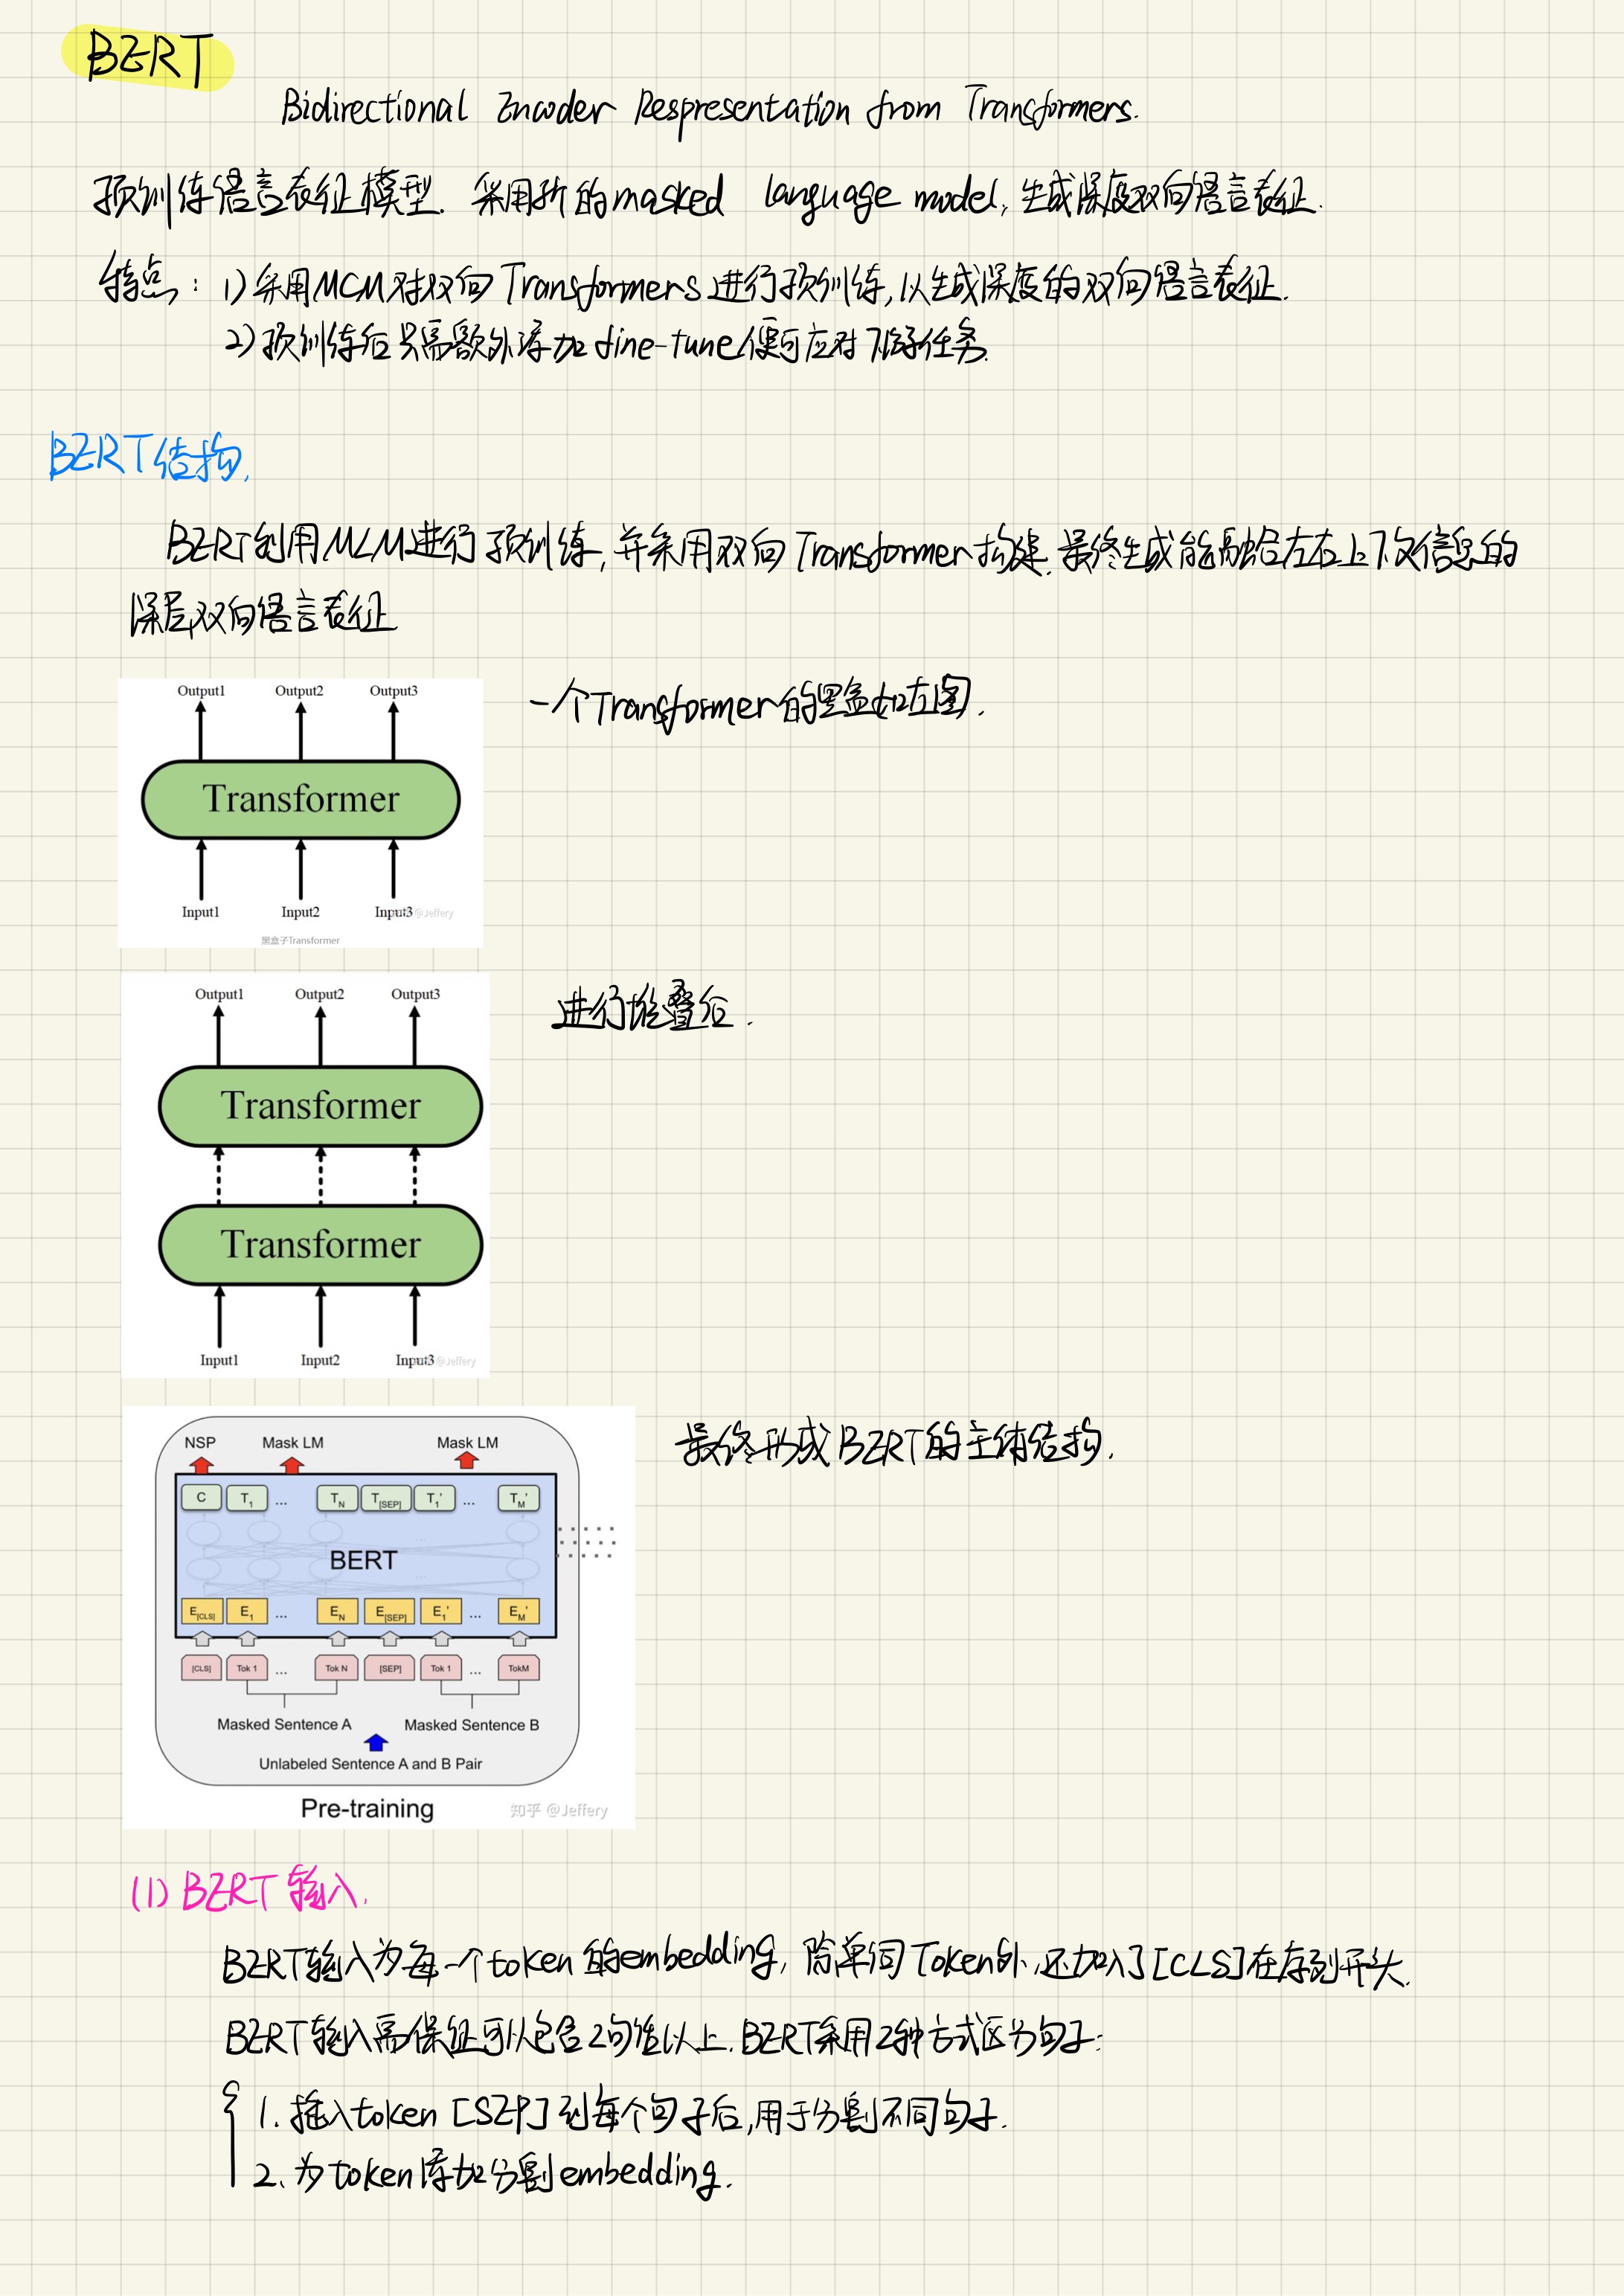 BERT
Bidirectional Encoder Respresentation from Transformers.
预训练语言表征模型. 采用新的masked language model, 生成深度双向语言表征.
特点: 1) 采用MCM对双向Transformers进行预训练, 以生成深度的双向语言表征.
2) 预训练后只需额外添加fine-tune便可应对下游任务.
BERT结构.
BERT利用MLM进行预训练, 并采用双向Transformer构建. 最终生成能融合左右上下文信息的
深层双向语言表征
Output1 Output2 Output3
Transformer
Input1 Input2 Input3
@Jeffery
黑盒子Transformer
一个Transformer的黑盒如左图.
Output1 Output2 Output3
Transformer
Transformer
Input1 Input2 Input3
@Jeffery
进行堆叠后.
NSP Mask LM Mask LM
C T1 ... TN T[SEP] T1' ... TM'
BERT
E[CLS] E1 ... EN E[SEP] E1' ... EM'
[CLS] Tok 1 ... Tok N [SEP] Tok 1 ... TokM
Masked Sentence A Masked Sentence B
Unlabeled Sentence A and B Pair
Pre-training
知乎 @Jeffery
最终形成BERT的主体结构.
(1) BERT输入.
BERT输入为每一个token的embedding, 除单词Token外, 还加入了[CLS]在序列开头.
BERT输入需保证可以包含2句话以上. BERT采用2种方式区分句子:
1. 插入token [SEP] 到每个句子后, 用于分割不同句子.
2. 为token添加分割embedding.